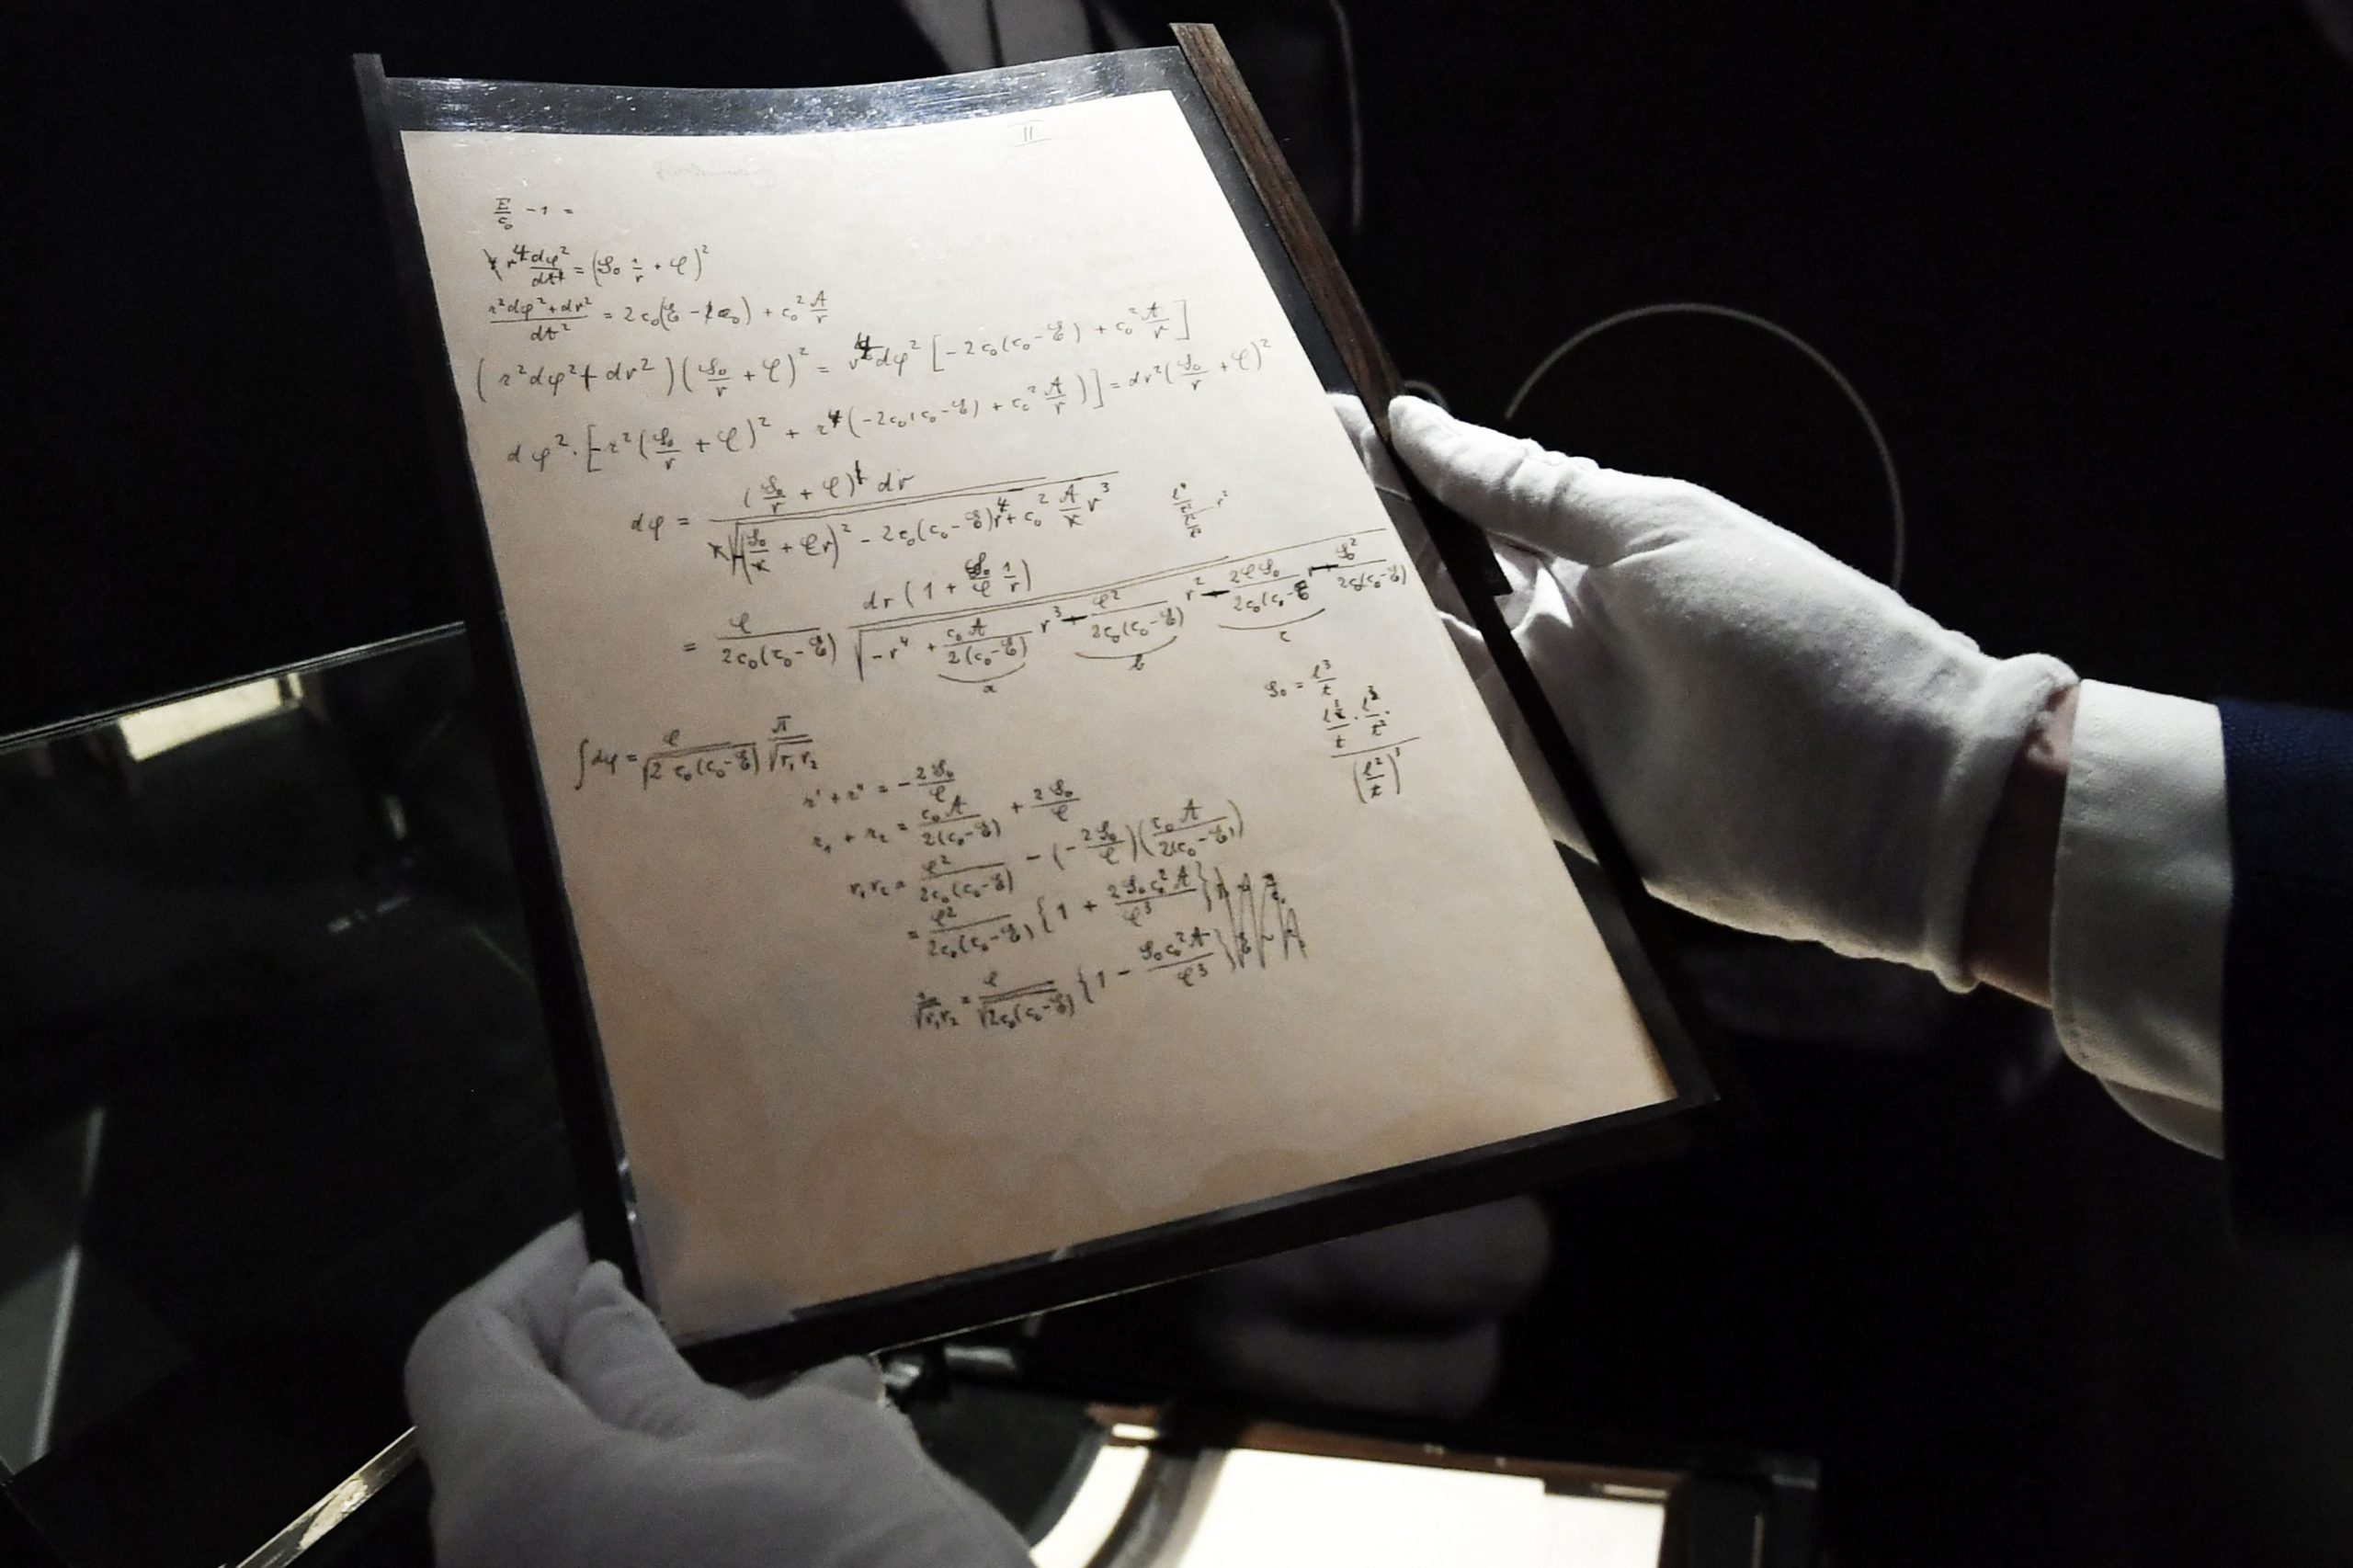 11
E/c₀ - 1 =
r⁴ dφ²/dt² = (S₀ 1/r + C)²
(r²dφ² + dr²)/dt² = 2c₀(E - c₀) + c₀² A/r
(r²dφ² + dr²)(S₀/r + C)² = r⁴dφ² [-2c₀(c₀ - E) + c₀² A/r]
dφ² · [-r²(S₀/r + C)² + r⁴(-2c₀(c₀ - E) + c₀² A/r)] = dr²(S₀/r + C)²
dφ = (S₀/r + C) dr / √(-(S₀ + Cr)² - 2c₀(c₀ - E)r⁴ + c₀² A r³)
= C/(2c₀(c₀ - E)) dr(1 + S₀/C 1/r) / √(-r⁴ + c₀A/(2(c₀ - E)) r³ - C²/(2c₀(c₀ - E)) r² - 2CS₀/(2c₀(c₀ - E)) r - S₀²/(2c₀(c₀ - E)))
a b c
S₀ = l³/t
∫dφ = C/√(2c₀(c₀ - E)) π/√(r₁r₂)
r' + r'' = - 2S₀/C
r₁ + r₂ = c₀A/(2(c₀ - E)) + 2S₀/C
r₁r₂ = C²/(2c₀(c₀ - E)) - (-2S₀/C)(c₀A/(2(c₀ - E)))
= C²/(2c₀(c₀ - E)) {1 + 2S₀c₀²A/C³}
1/√(r₁r₂) = C/√(2c₀(c₀ - E)) {1 - S₀c₀²A/C³}